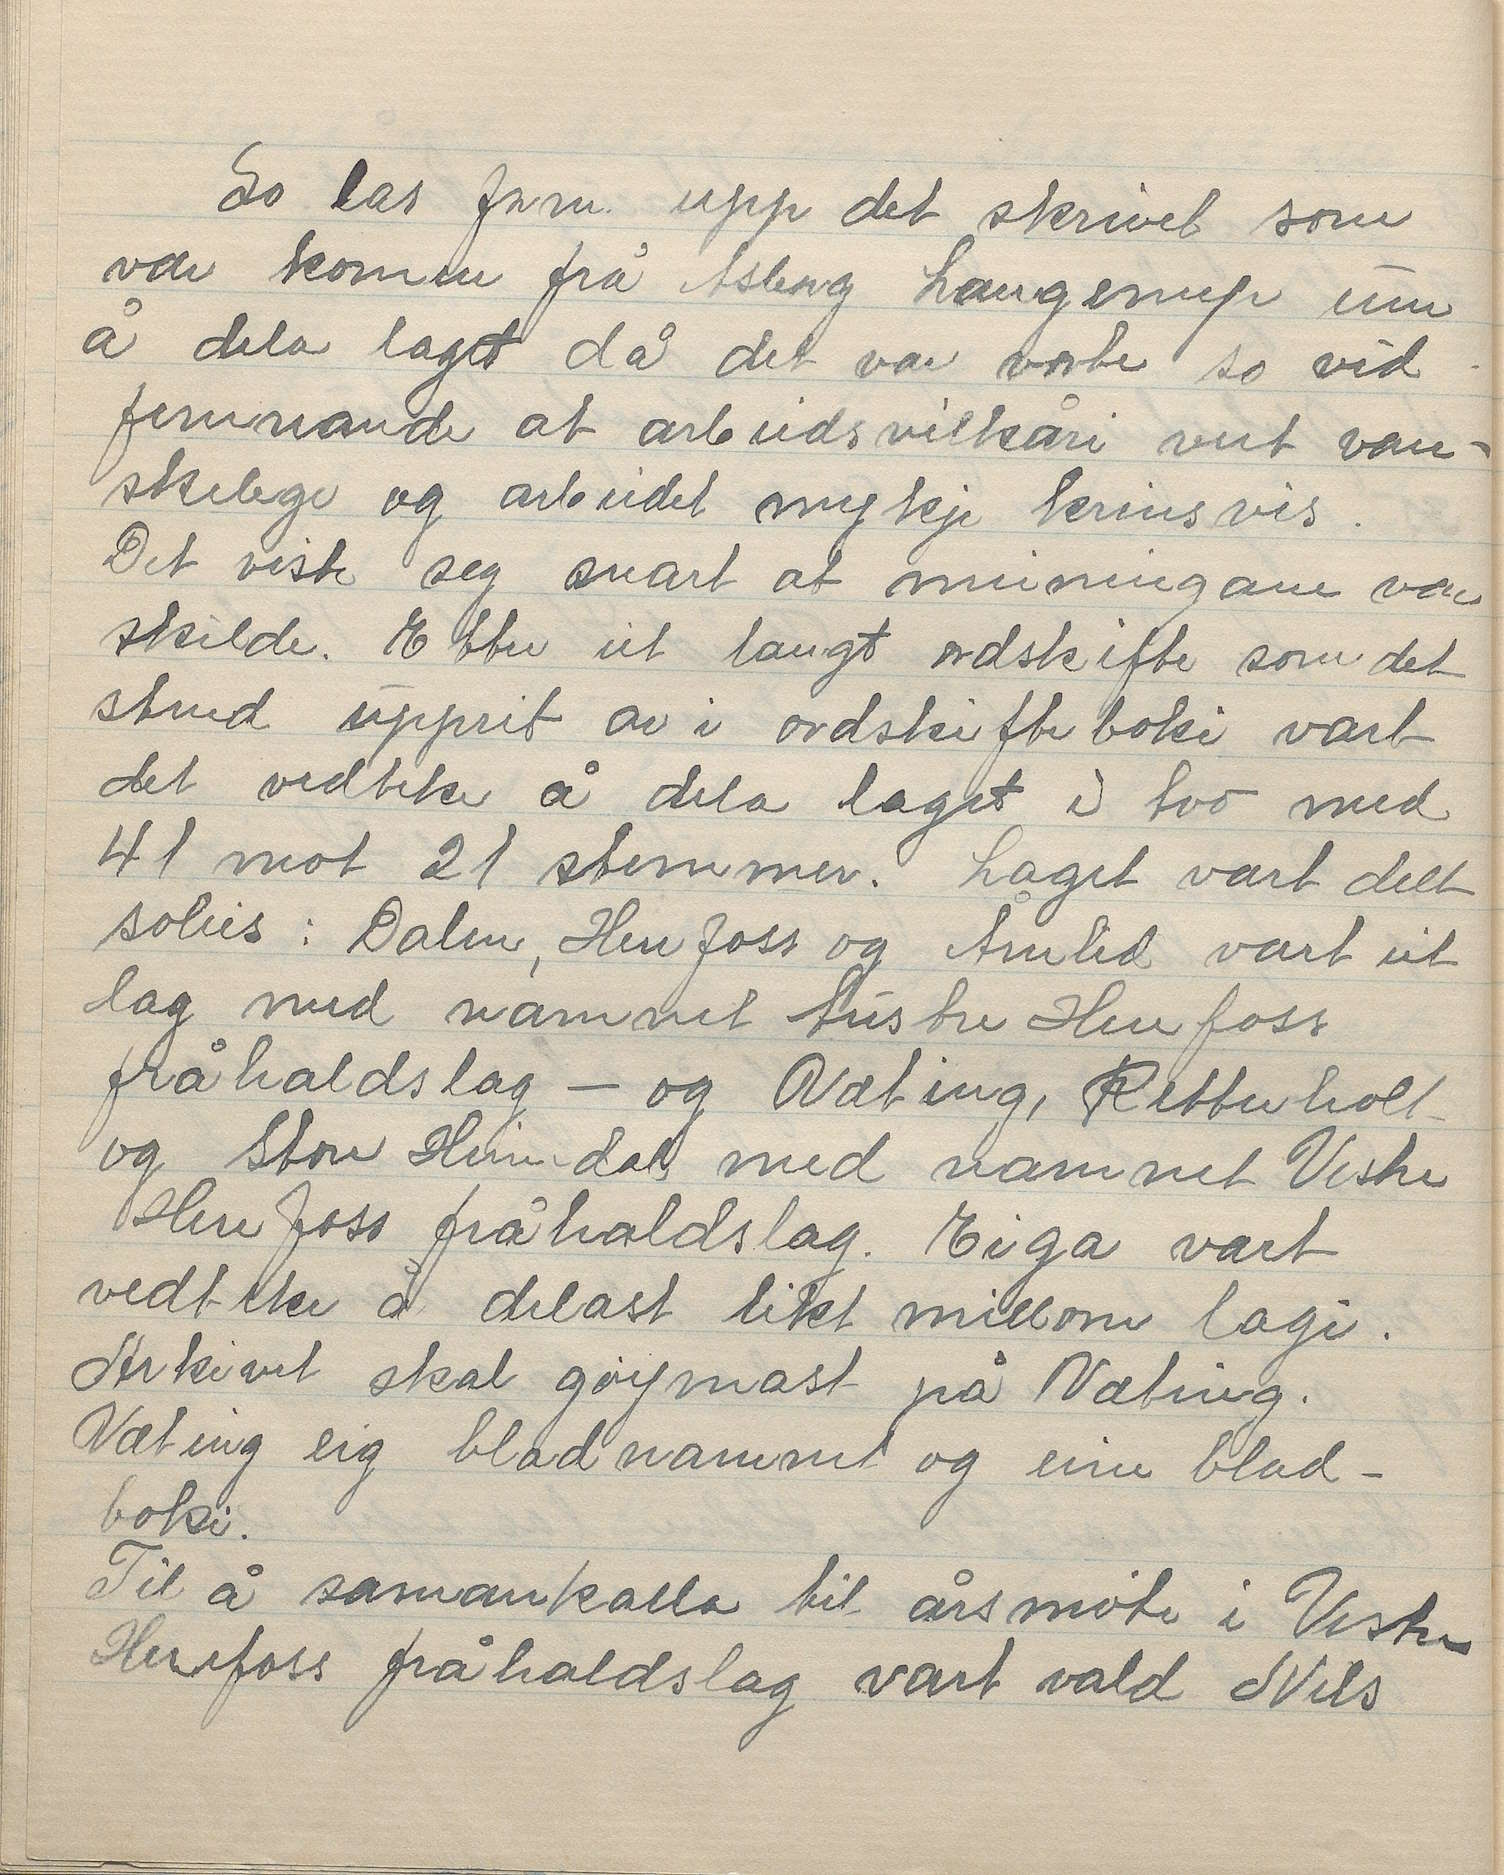 So las form. upp det skrivet som
var komen frå Aslaug Haugerup um
å dela laget då det var vorte so vid
femnande at arbeidsvilkåri vert van-
skelege og arbeidet mykje krinsvis.
Det viste seg snart at meiningane var
skilde. Etter eit langt ordskifte som det
stend upprit av i ordskifteboki vart
det vedteke å dela laget i två med
41 mot 21 stemmer. Laget vart delt
soleis: Dalen, Herefoss og Åmlid vart eit
lag med namnet Austre Herefoss
fråhaldslag - og Væting, Retterholt
og Store Heimdal med namnet Vestre
Herefoss fråhaldslag. Eiga vart
vedteke å delast likt millom lagi.
Arkivet skal göymast på Væting.
Væting eig bladnamnet og eine blad-
boki.
Til å samankalla til årsmöte i Vestre
Herefoss fråhaldslag vart vald Nils